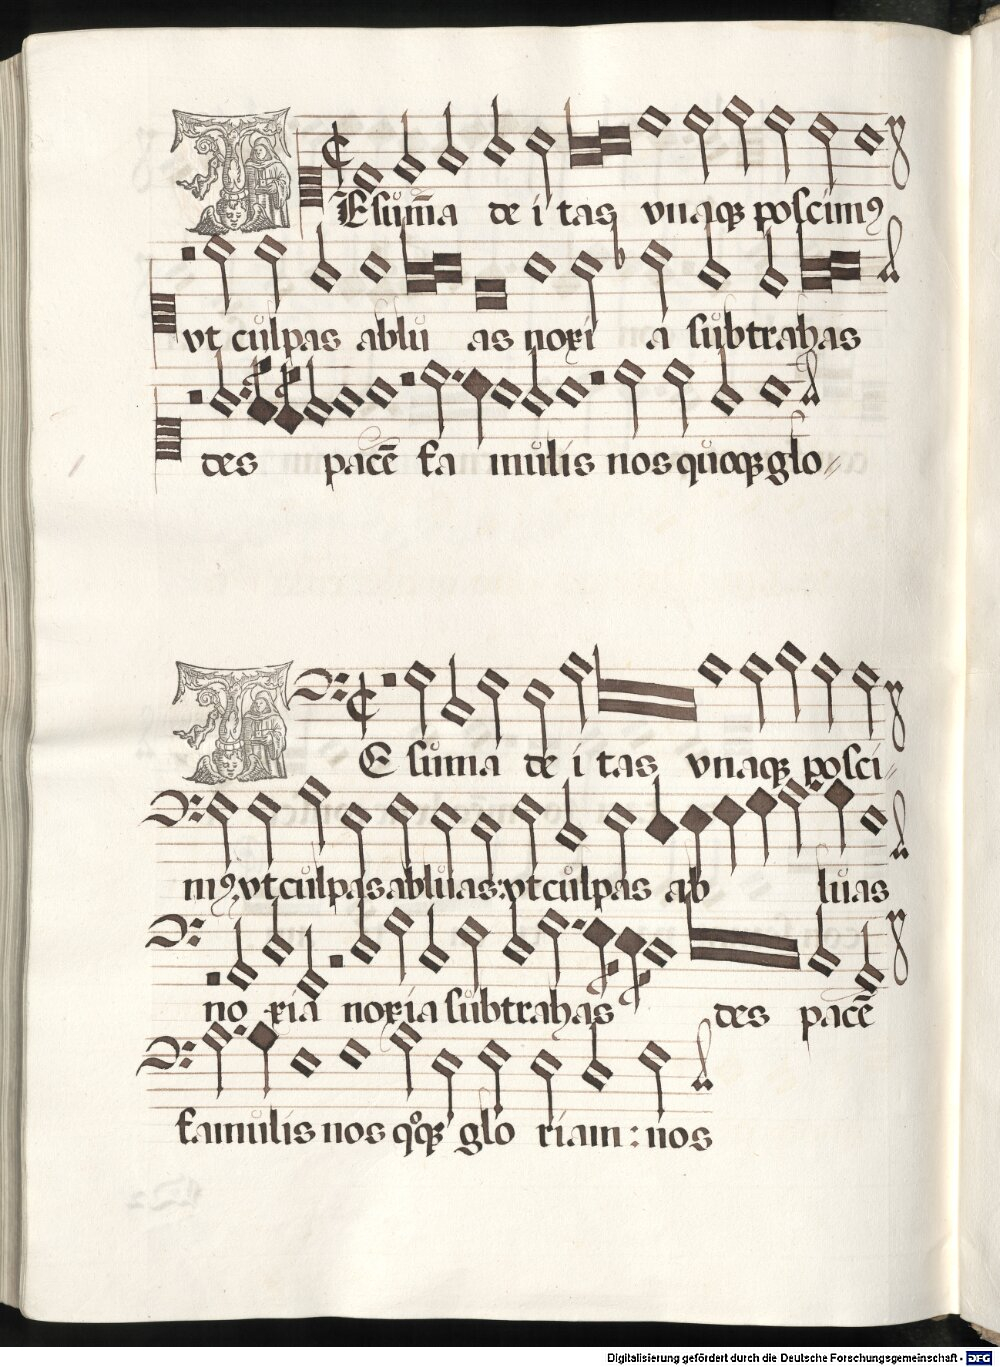 TE sum̄a de i tas vnaqꝫ poscimꝰ
vt culpas ablu as noxi a subtrahas
des pacē fa mulis nos quoqꝫ glo⸗
TE suma de i tas vnaqꝫ posci⸗
mꝰ vt culpas abluas: vt culpas ab luas
no xia noxia subtrahas des pacē
famulis nos qͦqꝫ glo riam: nos
Digitalisierung gefördert durch die Deutsche Forschungsgemeinschaft - DFG